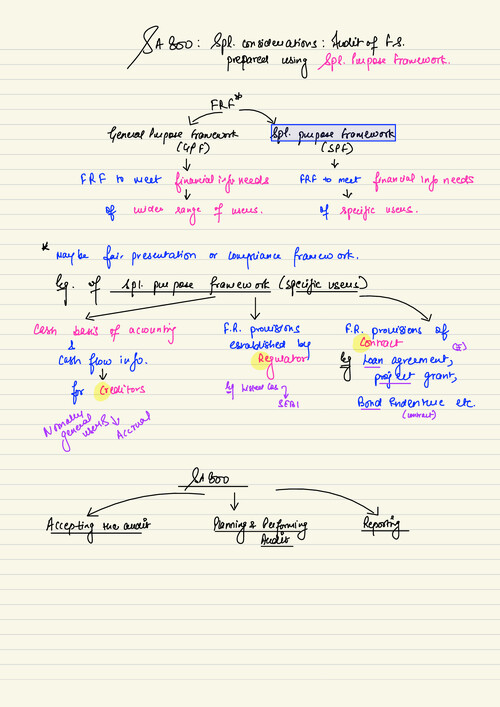 SA 800: Spl. considerations: Audit of F.S.
prepared using Spl. Purpose Framework.
FRF*
General Purpose Framework
(GPF)
Spl. purpose framework
(SPF)
FRF to meet financial info needs
of wider range of users.
FRF to meet financial info needs
of specific users.
* Maybe fair presentation or compliance framework.
Eg. of Spl. purpose framework (specific users)
Cash basis of accounting
&
Cash flow info.
for Creditors
Normally general users → Accrual
F.R. provisions
established by
Regulator
Eg Listed Cos
SEBI
F.R. provisions of
Contract
Eg Loan agreement,
project grant,
Bond Indenture etc.
(contract)
SA 800
Accepting the audit
Planning & Performing
Audit
Reporting